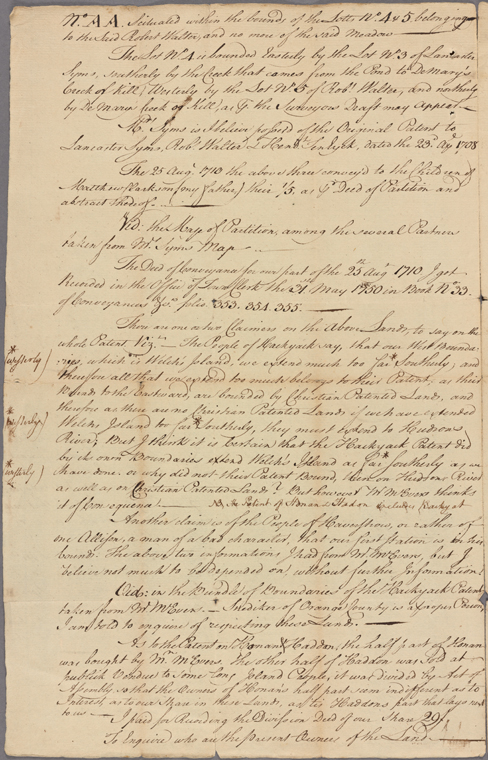 No. AA. Situated within the bounds of the Lotts No. 4 & 5 belonging
to the said Robert Walter, and no more of the said Meadow
The Lot No. 4 is bounded Easterly by the Lot No. 3 of Lancaster
Syms, Southerly by the Creek that comes from the Pond to Demarys
Creek of Kill, Westerly by the Lot No. 5 of Robt. Walter, and northerly
by De Maries Creek of Kill, as by the Surveyors Draft may Appear
Mr. Syms is I beleive possest of the Original Patent to
Lancaster Syms, Robt. Walter & Hend. TenEyck, dated the 23. 1708
The 25 Augt. 1710 the above three convey'd to the Children of
Matthew Clarkson (my Father) their 1/5, as pr Deed of Partition and
abstract thereof.
Vid. the Map of Partition, among the several Partners
taken from Mr. Syms Map
The Deed of Conveyance for our part of the 25th Augt 1710 I got
Recorded in the Office of New York the 21st May 1750 in Book No. 33
of Conveyances &c. folio. 353. 354. 355.
Thou are one or two Claimers on the Above Lands, to say on the
whole Patent Viz. The People of Hackyack say, that our West Bounda-
ries, which is Welch's Island, we extend much too far Southerly, and
therefore all that we extend too much belongs to their Patent, as their
Bounds to the Eastward, are bounded by Christian Patented Lands, and
therefore as there are no Christian Patented Lands if we have extended
Welchs Island too far Southerly, they must extend to Hudsons
River, But I think it is certain that the Hackyack Patent did
by its own Boundaries extend Welch's Island as far Southerly as we
have done. or why did not their Patent Bound, then on Hudsons River
as well as on Christian Patented Lands? But however Mr. McEvers thinks
it of Consequence.
Another claim is of the People of Haverstrow, or rather of
one Allison, a man of a bad character, that our first station is in their
bounds. The above two informations I had from Mr. McEvers, but I
beleive not much to be depended on without further Information!
Vide: in the Bundle of Boundaries of the Hackyack Patent
taken from Mr. McEvers. Snediker of Orange County is a proper Person,
I am told to enquire of respecting these Lands.
As to the Patent on Honan & Haddon, the half part of Honan
was bought by Mr. McEvers, the other half of Haddon was sold at
publick Vendue to some Long Island People, it was divided by Act of
Assembly, so that the Owners of Honan's half part seem indifferent as to
Interest, as to our Share in these Lands, as tis Haddons part that lays next
to us
I paid for Recording the Division Deed of our Share 29/.
To Enquire who are the present Owners of the Land
*westerly)
*westerly)
*westerly)